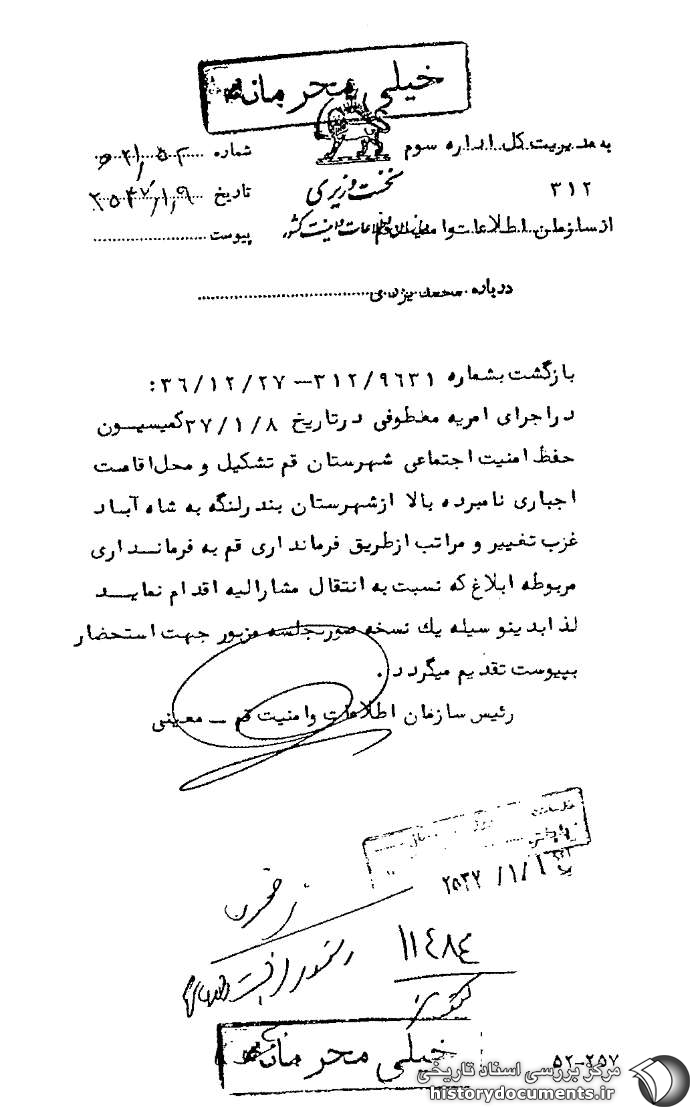 خیلی محرمانه
به مدیریت کل اداره سوم
۳۱۲
نخست وزیری
از سازمان اطلاعات و امنیت قم
سازمان اطلاعات و امنیت کشور
شماره
تاریخ ۲۵۳۷/۱/۹
پیوست
درباره محمد یزدی
بازگشت بشماره ۳۱۲/۹۶۳۱ – ۳۶/۱۲/۲۷ :
در اجرای امریه معطوفی در تاریخ ۳۷/۱/۸ کمیسیون
حفظ امنیت اجتماعی شهرستان قم تشکیل و محل اقامت
اجباری نامبرده بالا از شهرستان بندرلنگه به شاه آباد
غرب تغییر و مراتب از طریق فرمانداری قم به فرمانداری
مربوطه ابلاغ که نسبت به انتقال مشارالیه اقدام نماید
لذا بدینوسیله یک نسخه صورتجلسه مزبور جهت استحضار
بپیوست تقدیم میگردد .
رئیس سازمان اطلاعات و امنیت قم – معینی
۲۵۳۷/۱/۱۶
۱۱۴۸۴
خیلی محرمانه
۵۲-۲۵۷
مرکز بررسی اسناد تاریخی
historydocuments.ir